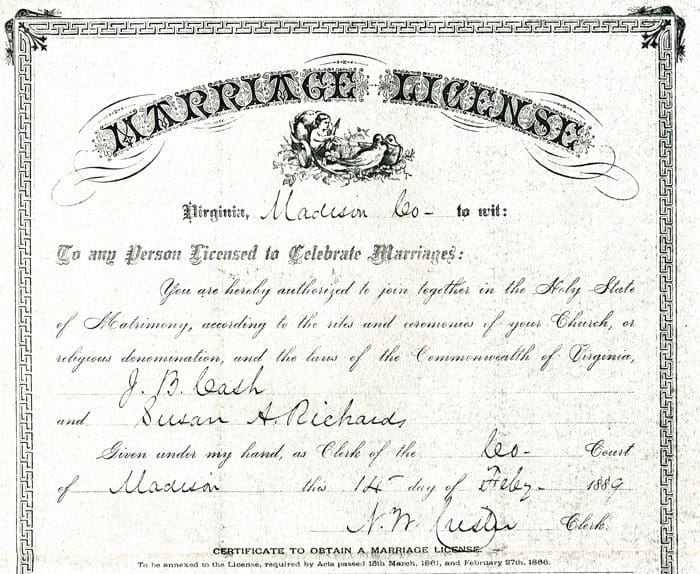 MARRIAGE LICENSE
Virginia, Madison Co- to wit:
To any Person Licensed to Celebrate Marriages:
You are hereby authorized to join together in the Holy State
of Matrimony, according to the rites and ceremonies of your Church, or
religious denomination, and the laws of the Commonwealth of Virginia,
J. B. Cash
and Susan A. Richards
Given under my hand, as Clerk of the Co- Court
of Madison this 14 day of Feby- 1889
N. W. Clerk.
CERTIFICATE TO OBTAIN A MARRIAGE LICENSE.
To be annexed to the License, required by Acts passed 15th March, 1861, and February 27th, 1866.